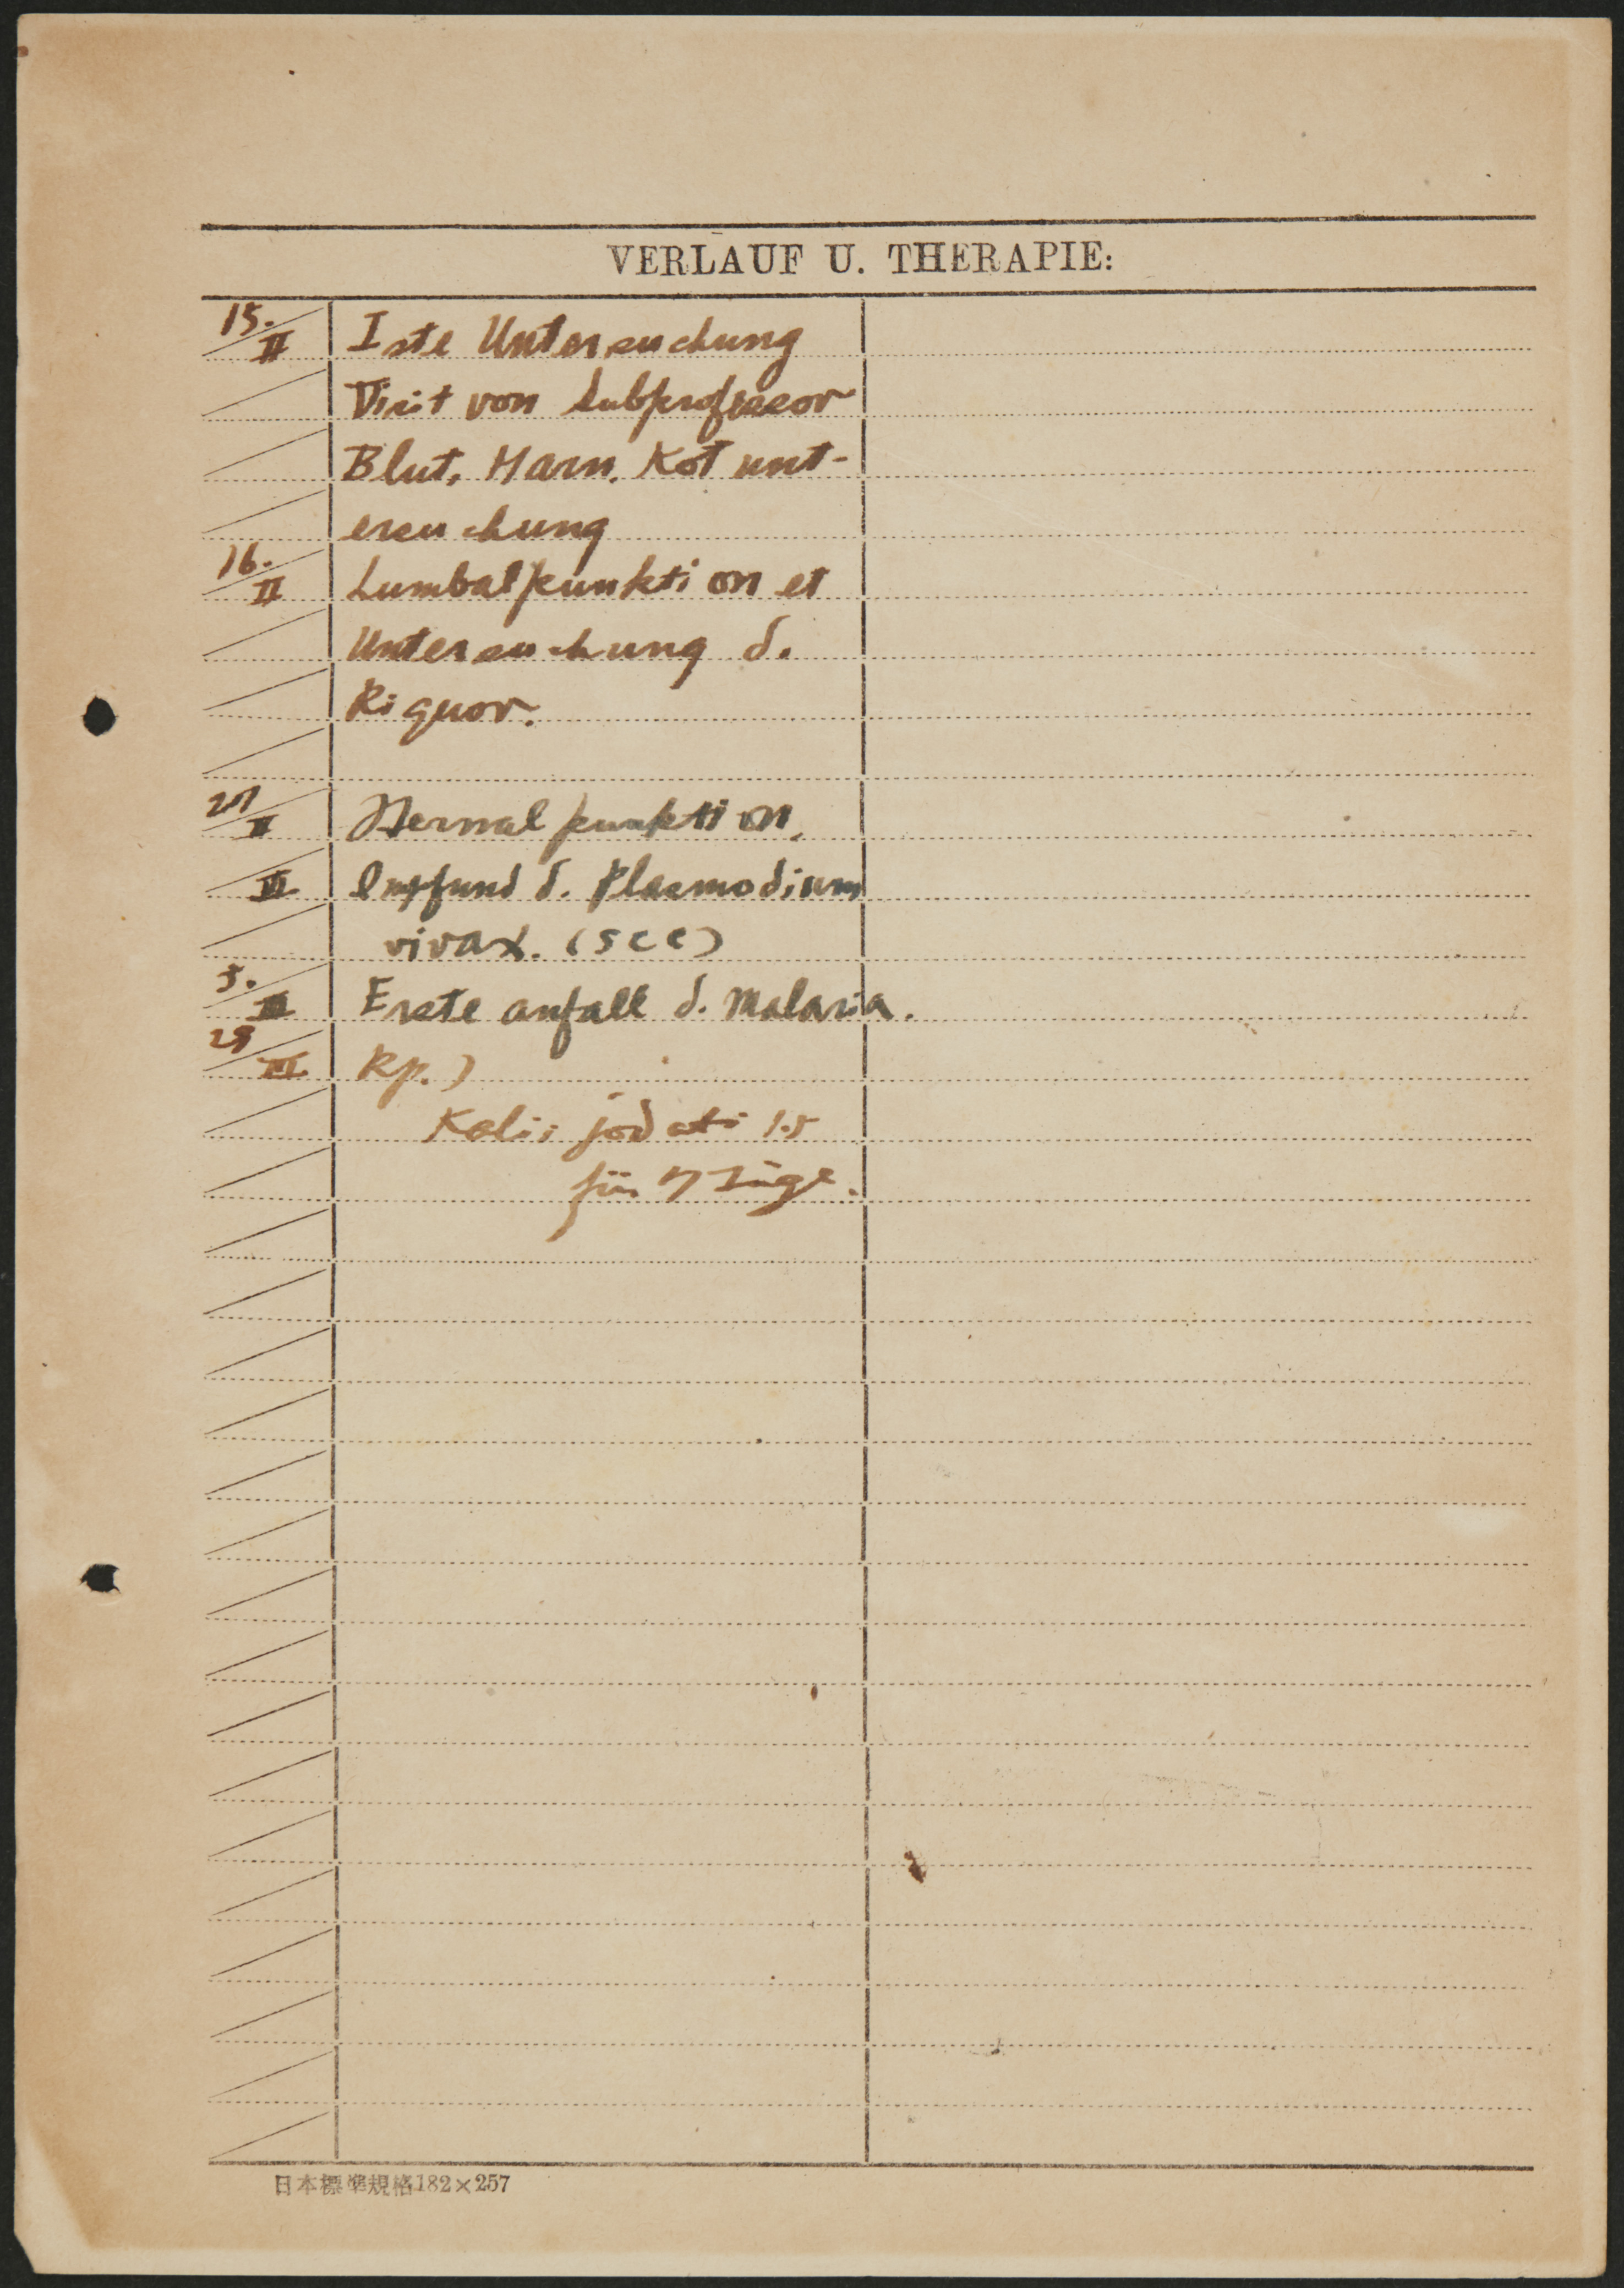 VERLAUF U. THERAPIE:
15./II Iste Untersuchung
Visit von Subprofessor
Blut, Harn, Kot unt-
ersuchung
16./II Lumbalpunktion et
Untersuchung d.
Riquor.
27/II Sternalpunktion,
II Impfund d. Plasmodium
vivax. (5cc)
5./III Erste anfall d. Malaria.
29/III Rp.)
Kalii jodati 1.5
für 7 Tage.
日本標準規格182×257